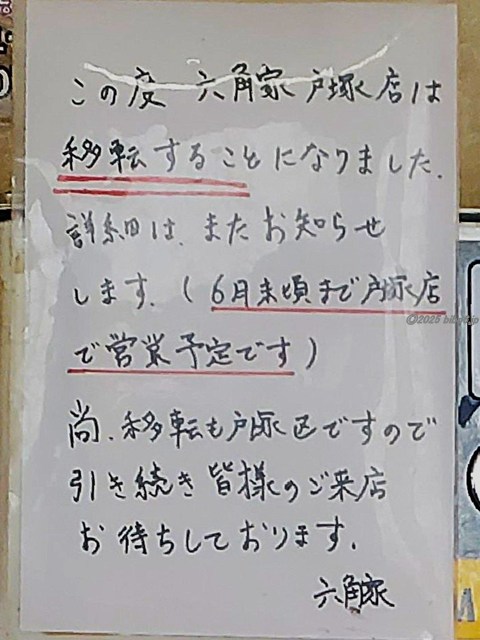 この度 六角家 戸塚店は
移転することになりました.
詳細は、またお知らせ
します.(6月末頃まで戸塚店
で営業予定です)
尚.移転も戸塚区ですので
引き続き皆様のご来店
お待ちしております.
六角家